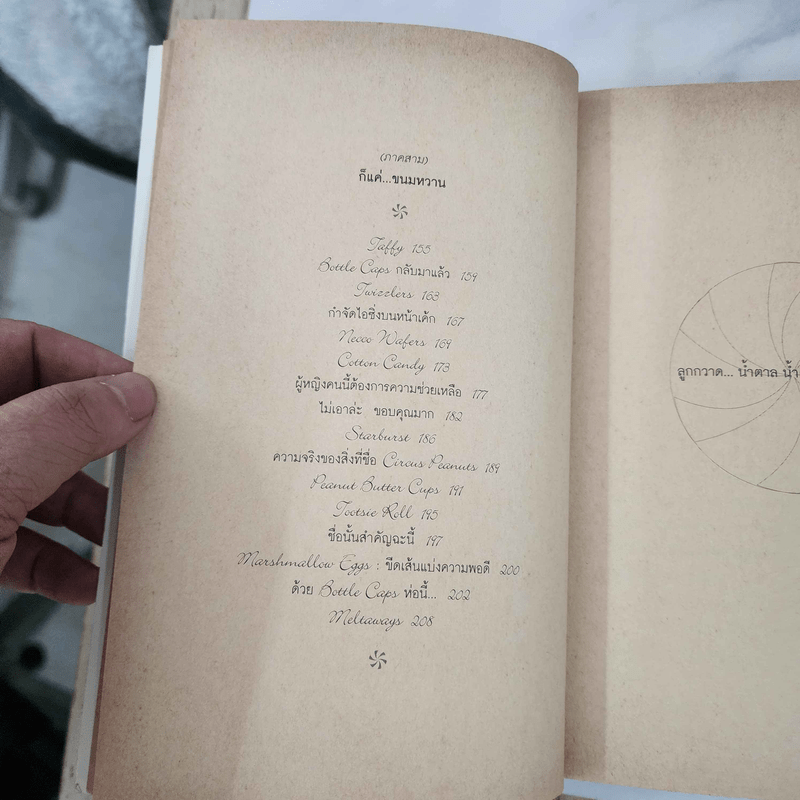 (ภาคสาม)
ก็แค่...ขนมหวาน
Taffy 155
Bottle Caps กลับมาแล้ว 159
Twizzlers 163
กำจัดไอซิ่งบนหน้าเค้ก 167
Necco Wafers 169
Cotton Candy 173
ผู้หญิงคนนี้ต้องการความช่วยเหลือ 177
ไม่เอาล่ะ ขอบคุณมาก 182
Starburst 186
ความจริงของสิ่งที่ชื่อ Circus Peanuts 189
Peanut Butter Cups 191
Tootsie Roll 195
ชื่อนั้นสำคัญฉะนี้ 197
Marshmallow Eggs : ขีดเส้นแบ่งความพอดี 200
ด้วย Bottle Caps ห่อนี้... 202
Meltaways 208
ลูกกวาด... น้ำตาล น้ำ